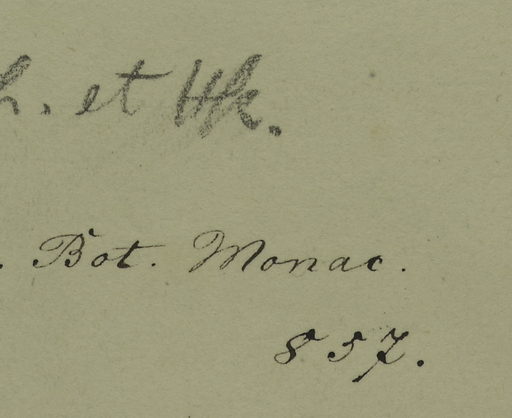 h. et Hk.
. Bot. Monac.
857.